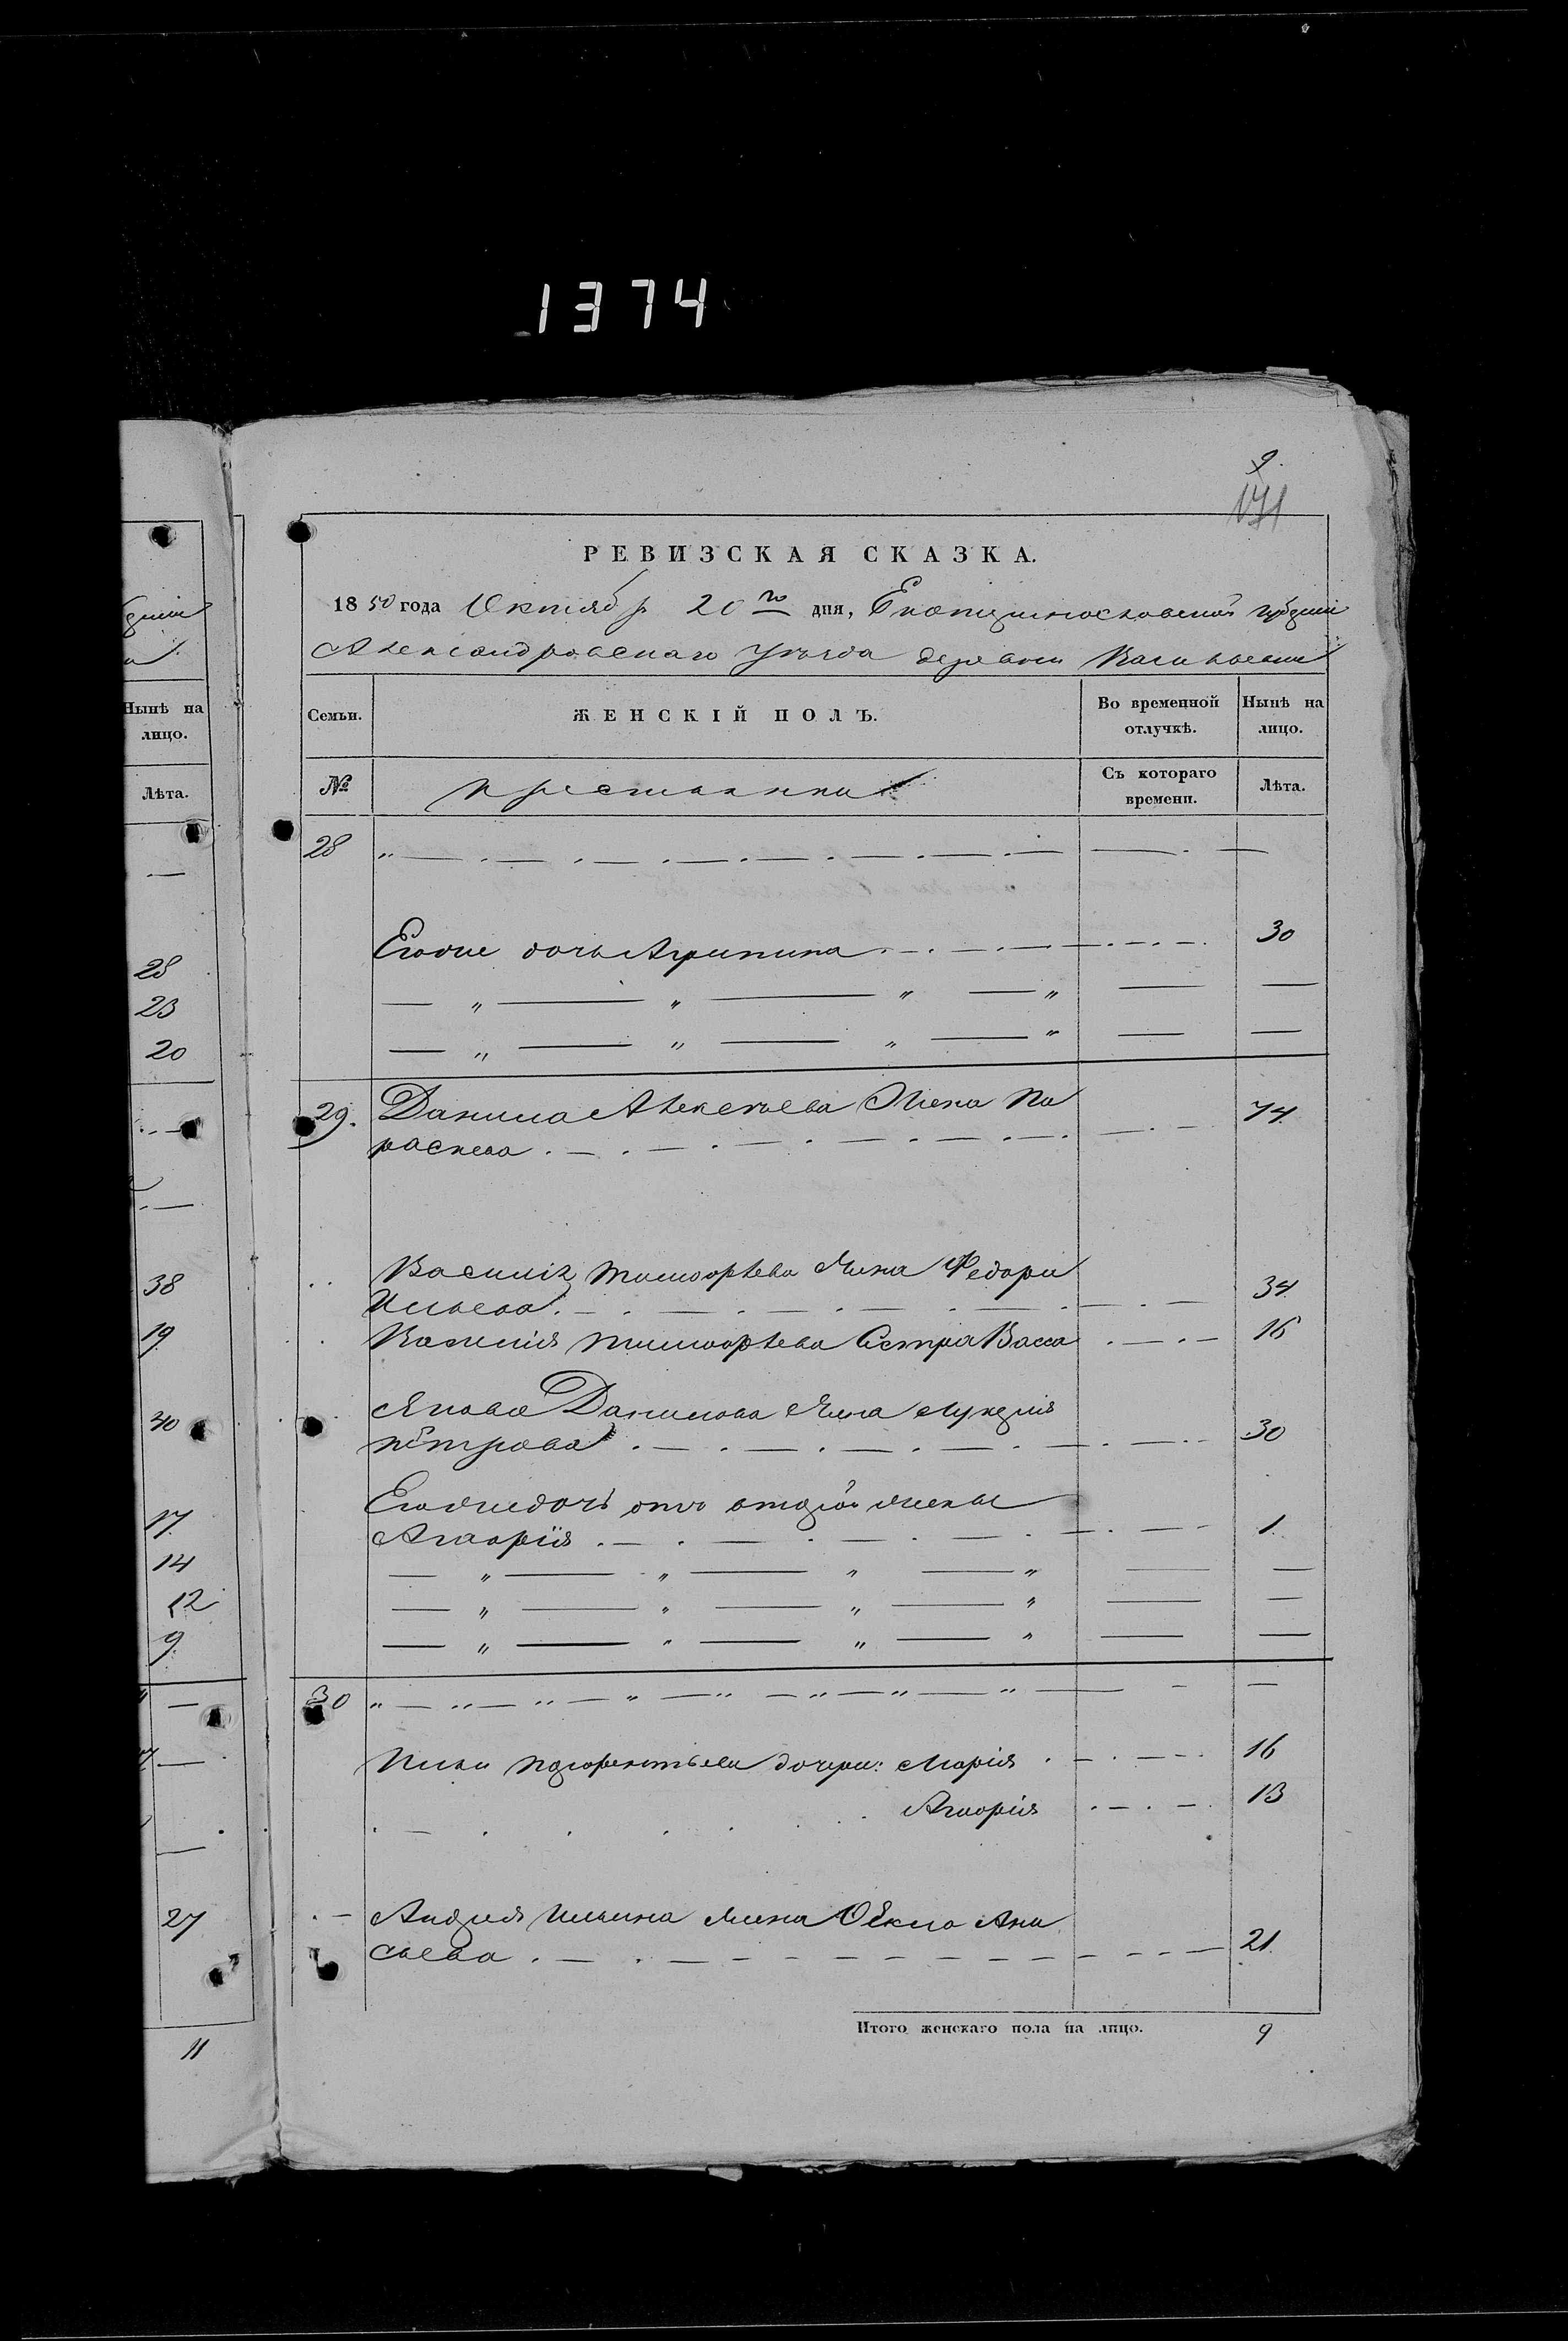 1374
9.
171
РЕВИЗСКАЯ СКАЗКА.
1850 года Октября 20го дня, Екатеринославской губернiи
Александровскаго уѣзда деревни Васильевки
Нынѣ на лицо.
Лѣта.
Семьи.
ЖЕНСКІЙ ПОЛЪ.
Во временной отлучкѣ.
Нынѣ на лицо.
№
крестьянки
Съ котораго времени.
Лѣта.
28
Его же дочь Агрипина 30
29. Данила Алексѣева жена Па
раскева 74
Василія Тимофѣева жена Федора
Ильева 34
Василія Тимофѣева сестра Васса 16
Якова Данилова жена Лукерія
Петрова 30
Его же дочь отъ второй жены
Агафрія 1
30
Ильи дочери: Марія 16
Агафрія 13
Андрея Ильина жена Ѳекла Ана
сьева 21
Итого женскаго пола на лицо. 9
28
23
20
38
19
40
17
14
12
9
27
11